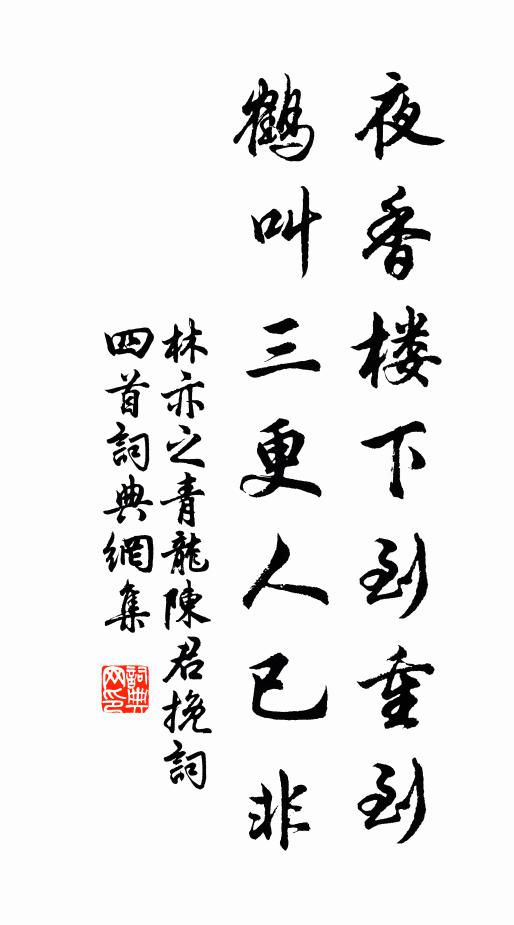 夜香楼下到重到
鶴叫三更人已非
林亦之青龍陳君挽詞
四首詞典網集
詞典
网印